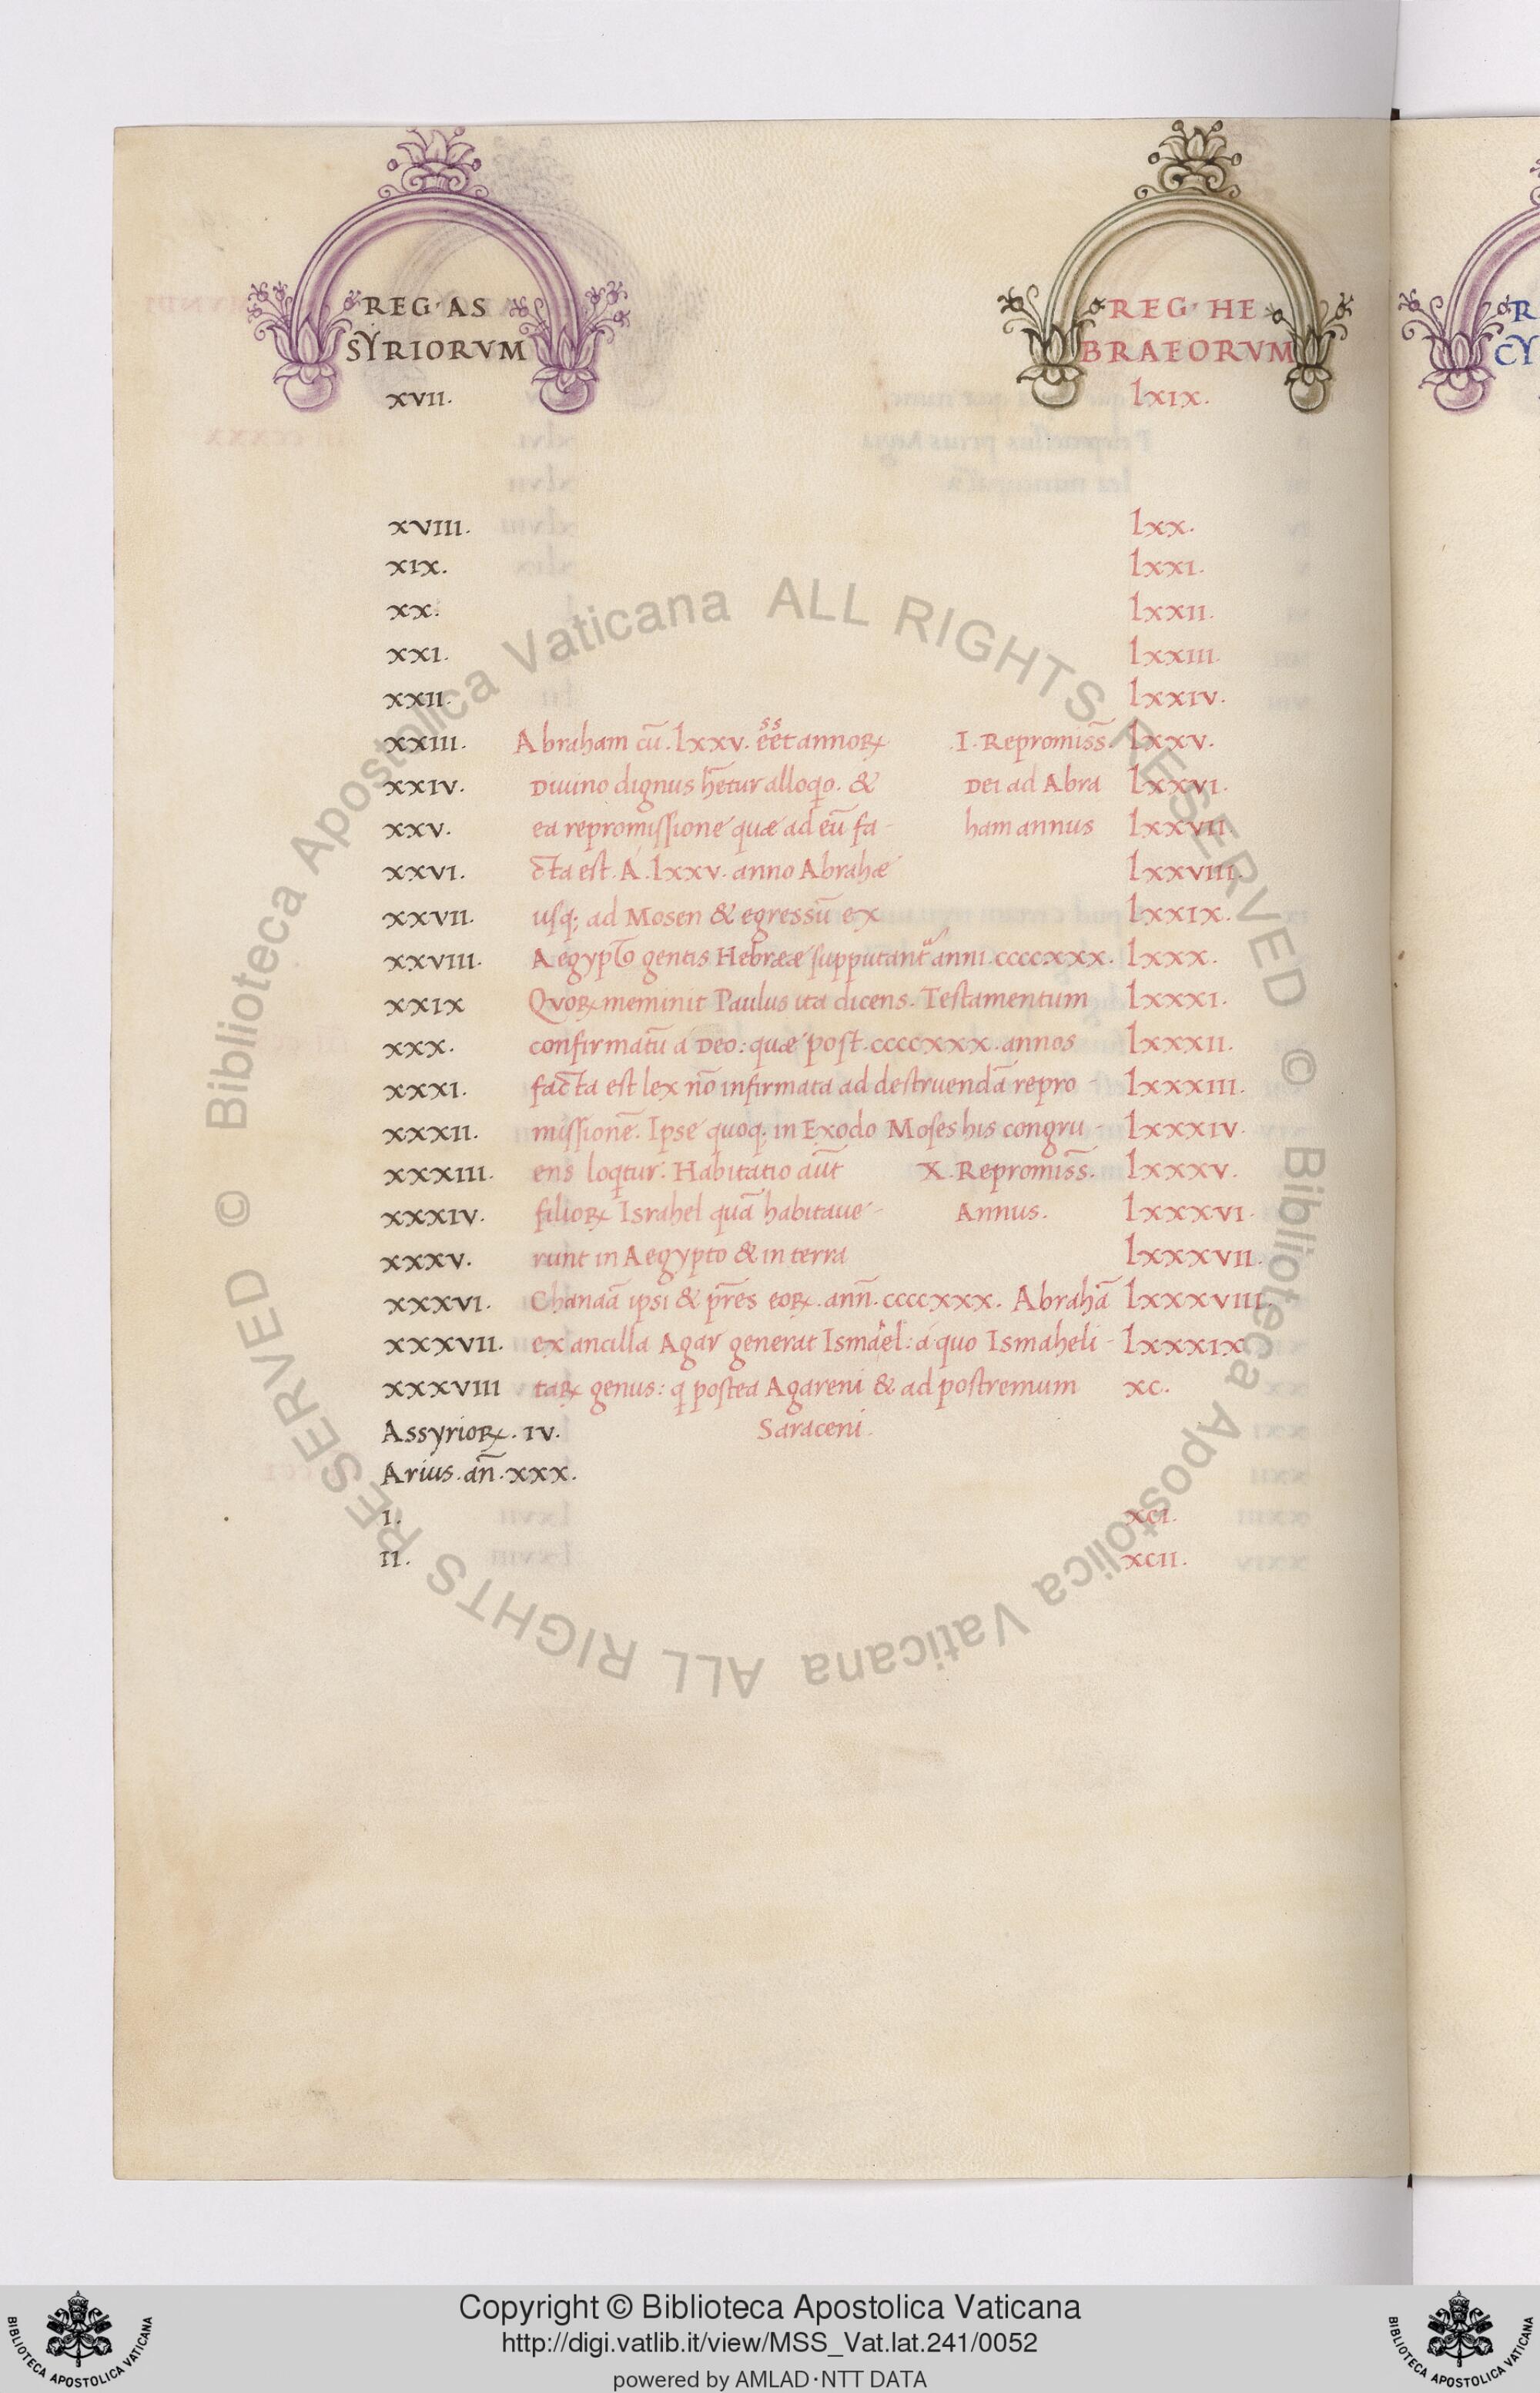 REG· AS
SYRIORVM
REG· HE
BRAEORVM
R
CY
xvii. lxix.
xviii. lxx.
xix. lxxi.
xx. lxxii.
xxi. lxxiii.
xxii. lxxiv.
xxiii. Abraham cū .lxxv. eēt annoꝝ .I. Repromiss̄. lxxv.
xxiv. Diuino dignus hētur alloqo. & Dei ad Abra lxxvi.
xxv. ea repromissione quæ ad eū fa- ham annus lxxvii.
xxvi. cta est. A .lxxv. anno Abrahæ lxxviii.
xxvii. usq; ad Mosen & egressū ex lxxix.
xxviii. Aegypto gentis Hebrææ supputant̄ anni .ccccxxx. lxxx.
xxix Quoꝝ meminit Paulus ita dicens. Testamentum lxxxi.
xxx. confirmatū a Deo: quæ post .ccccxxx. annos lxxxii.
xxxi. facta est lex nō infirmata ad destruendā repro- lxxxiii.
xxxii. missionē. Ipse quoq; in Exodo Moses his congru- lxxxiv.
xxxiii. ens loqtur. Habitatio aūt X. Repromiss̄. lxxxv.
xxxiv. filioꝝ Israhel quā habitaue- Annus. lxxxvi.
xxxv. runt in Aegypto & in terra lxxxvii.
xxxvi. Chanaā ipsi & pr̄es eoꝝ. ann̄. ccccxxx. Abrahā lxxxviii.
xxxvii. ex ancilla Agar generat Ismael: a quo Ismaheli- lxxxix
xxxviii taꝝ genus: q postea Agareni & ad postremum xc.
Assyrioꝝ. iv. Saraceni.
Arius. an̄. xxx.
i. xci.
ii. xcii.
© Biblioteca Apostolica Vaticana ALL RIGHTS RESERVED © Biblioteca Apostolica Vaticana ALL RIGHTS RESERVED
Copyright © Biblioteca Apostolica Vaticana
http://digi.vatlib.it/view/MSS_Vat.lat.241/0052
powered by AMLAD·NTT DATA
BIBLIOTECA APOSTOLICA VATICANA
BIBLIOTECA APOSTOLICA VATICANA